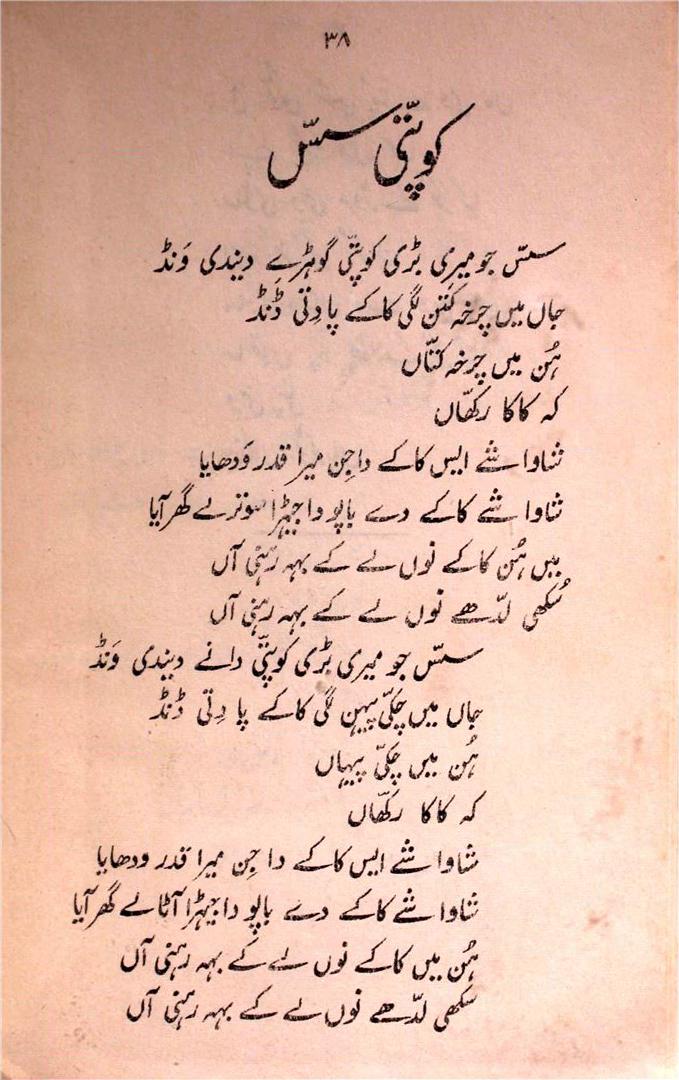 ۳۸
کوپتّی سسّ
سسّ جو میری بڑی کوپتّی گوہڑے دیندی وَنڈ
جاں میں چرخہ کَتّن لگی کاکے پا دِتی ڈَنڈ
ہُن میں چرخہ کتّاں
کہ کاکا رکھّاں
شاواشے ایس کاکے دا جِن میرا قدر وَدھایا
شاواشے کاکے دے باپو دا جیہڑا سوتر لے گھر آیا
میں ہُن کاکے نوں لے کے بہہ رہنی آں
سُکھی لدّھے نوں لے کے بہہ رہنی آں
سسّ جو میری بڑی کوپتّی دانے دیندی وَنڈ
جاں میں چکّی پیہن لگی کاکے پا دِتی ڈنڈ
ہُن میں چکّی پیہاں
کہ کاکا رکھّاں
شاواشے ایس کاکے دا جِن میرا قدر ودھایا
شاواشے کاکے دے باپو دا جیہڑا آٹا لے گھر آیا
ہُن میں کاکے نوں لے کے بہہ رہنی آں
سکھی لدّھے نوں لے کے بہہ رہنی آں